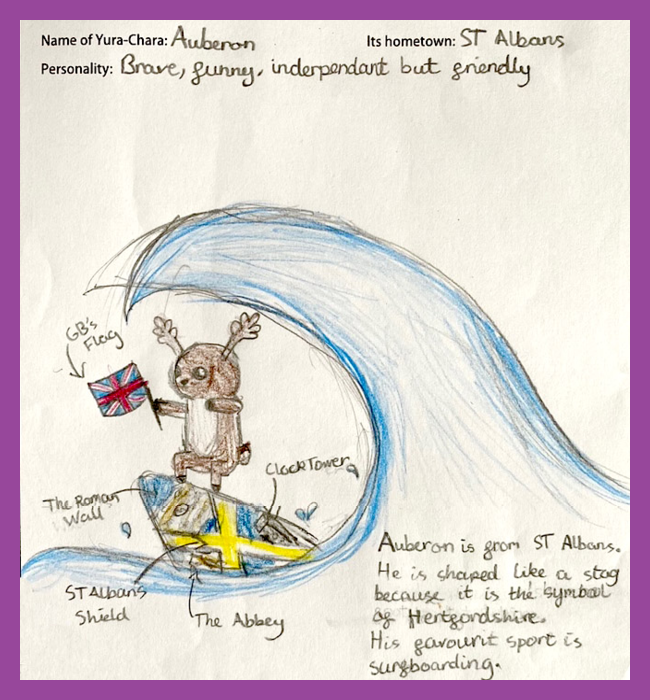 Name of Yura-Chara: Auberon
Its hometown: ST Albans
Personality: Brave, funny, inderpendant but friendly
GB's
Flag
Clock Tower
The Roman
Wall
ST Albans
Shield
The Abbey
Auberon is from ST Albans.
He is shaped like a stag
because it is the symbol
of Hertfordshire.
His favourit sport is
surfboarding.